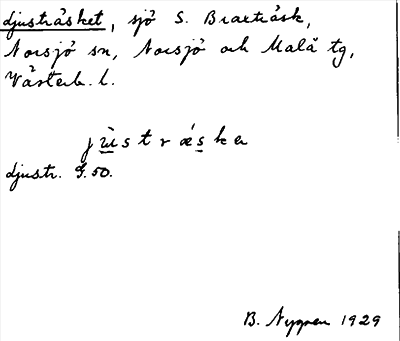 djusträsket, sjö S. Braxträsk,
Norsjö sn, Norsjö och Malå tg,
Västerb. l.
jùstrǽska
djustr. G.50.
B. Nygren 1929